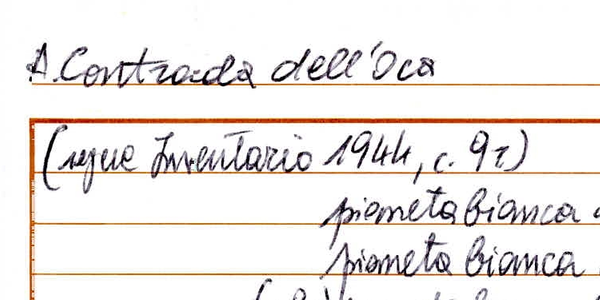 A. Contrada dell'Oca
(segue Inventario 1944, c. 9r)
pianeta bianca
pianeta bianca